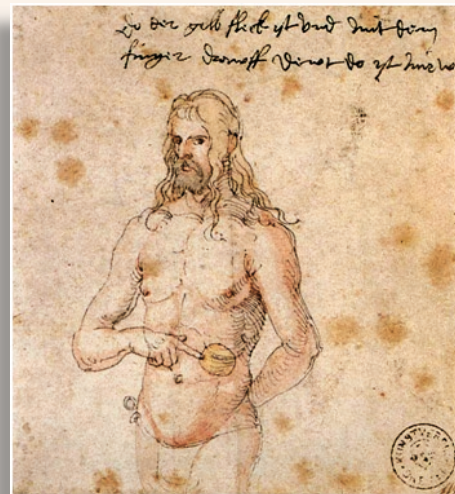 Do der gelb fleck ist und mit dem
finger drawff dewt do ist mir we
KUNSTVEREIN
BREMEN